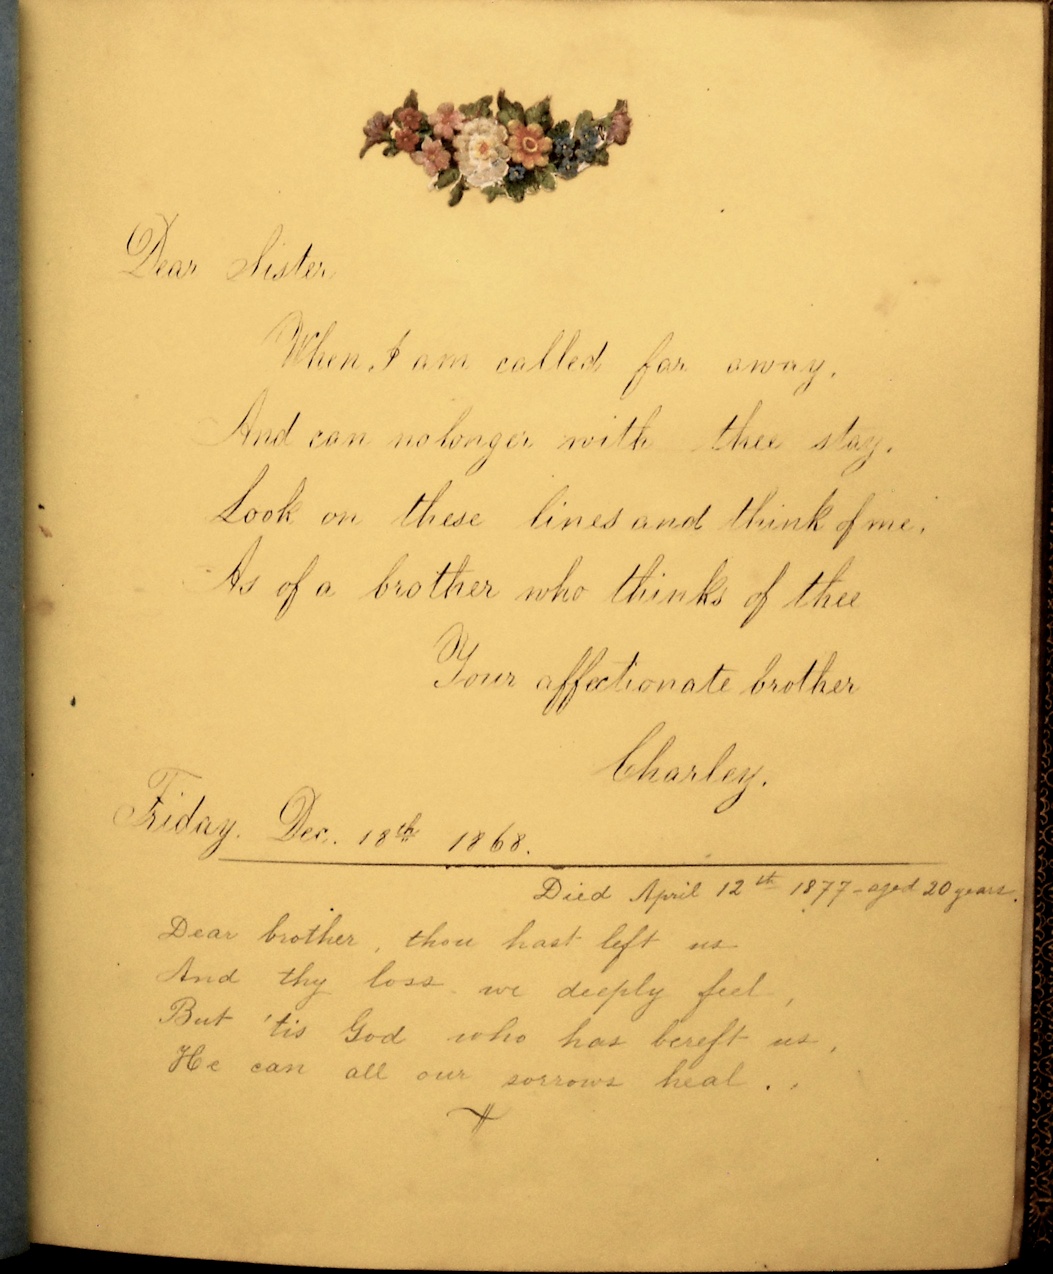 Dear Sister
When I am called far away.
And can no longer with thee stay.
Look on these lines and think of me.
As of a brother who thinks of thee
Your affectionate brother
Charley.
Friday. Dec. 18th 1868.
Died April 12th 1877 - aged 20 years.
Dear brother, thou hast left us
And thy loss we deeply feel,
But 'tis God who has bereft us,
He can all our sorrows heal..